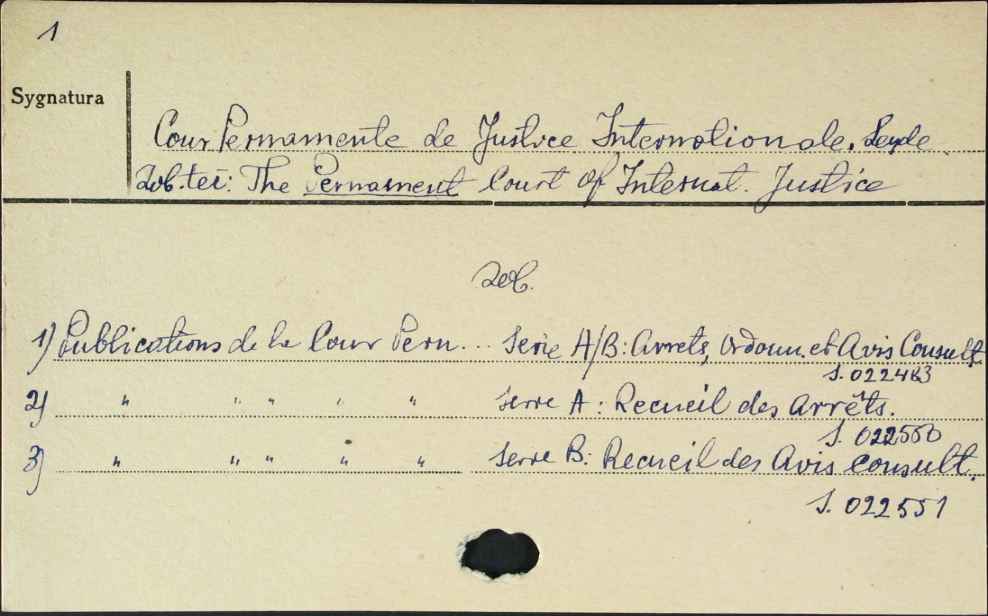 1
Sygnatura
Cour Permamente de Justice Internationale. Leyde
Zob. też: The Permament Court of Internat. Justice
Zob.
1) Publications de la Cour Perm... Serie A/B: Arrets, Ordonn. et Avis Consult
J. 022483
2) " " " " " Serie A: Recueil des Arrêts.
J. 022550
3) " " " " " Serie B: Recueil des Avis consult.
J. 022551